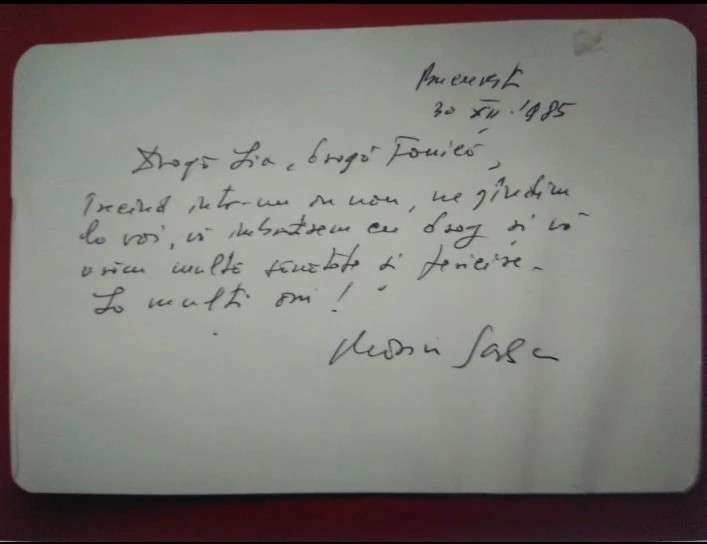 București
30 XII. 1985
Dragă Lia, dragă Fănică,
Trecînd într-un an nou, ne gîndim
la voi, vă îmbrățișăm cu drag și vă
urăm multă sănătate și fericire.
La mulți ani!